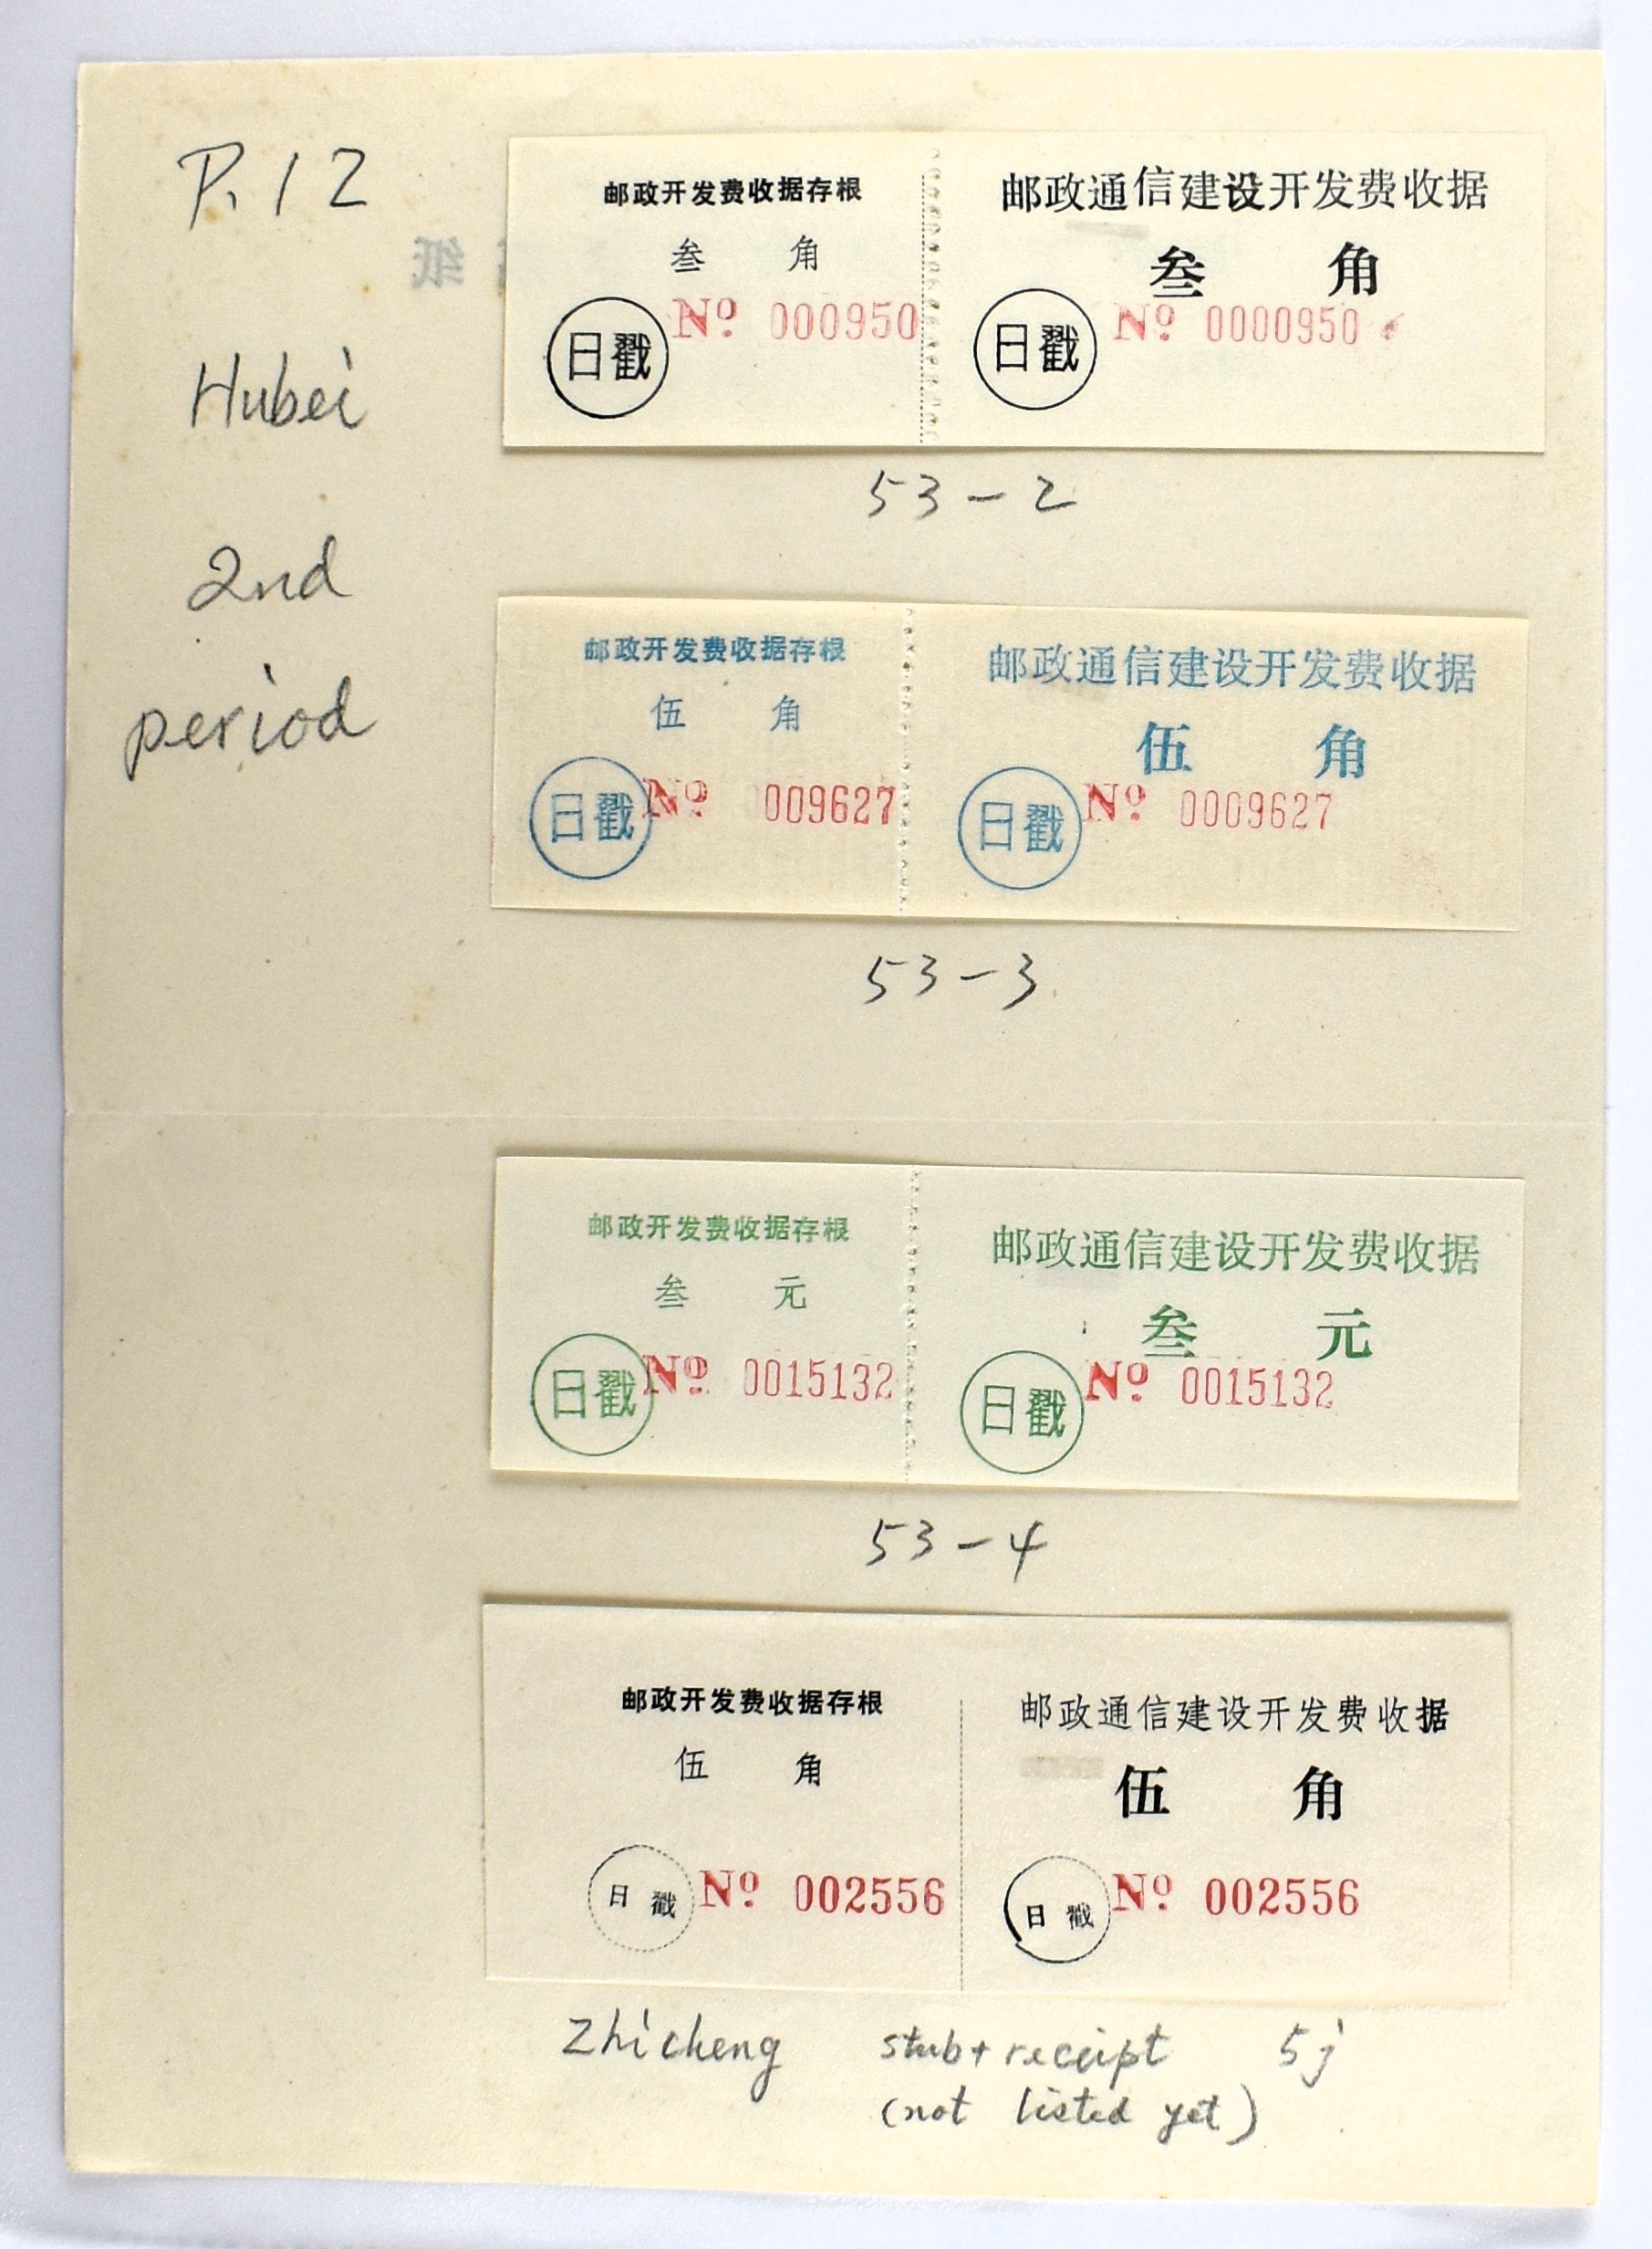 P. 12
纸
Hubei
2nd
period
邮政开发费收据存根
叁 角
No 000950
日戳
邮政通信建设开发费收据
叁 角
No 0000950
日戳
53-2
邮政开发费收据存根
伍 角
No 009627
日戳
邮政通信建设开发费收据
伍 角
No 0009627
日戳
53-3
邮政开发费收据存根
叁 元
No 0015132
日戳
邮政通信建设开发费收据
叁 元
No 0015132
日戳
53-4
邮政开发费收据存根
伍 角
日戳 No 002556
邮政通信建设开发费收据
伍 角
日戳 No 002556
Zhicheng stub+receipt 5j
(not listed yet)